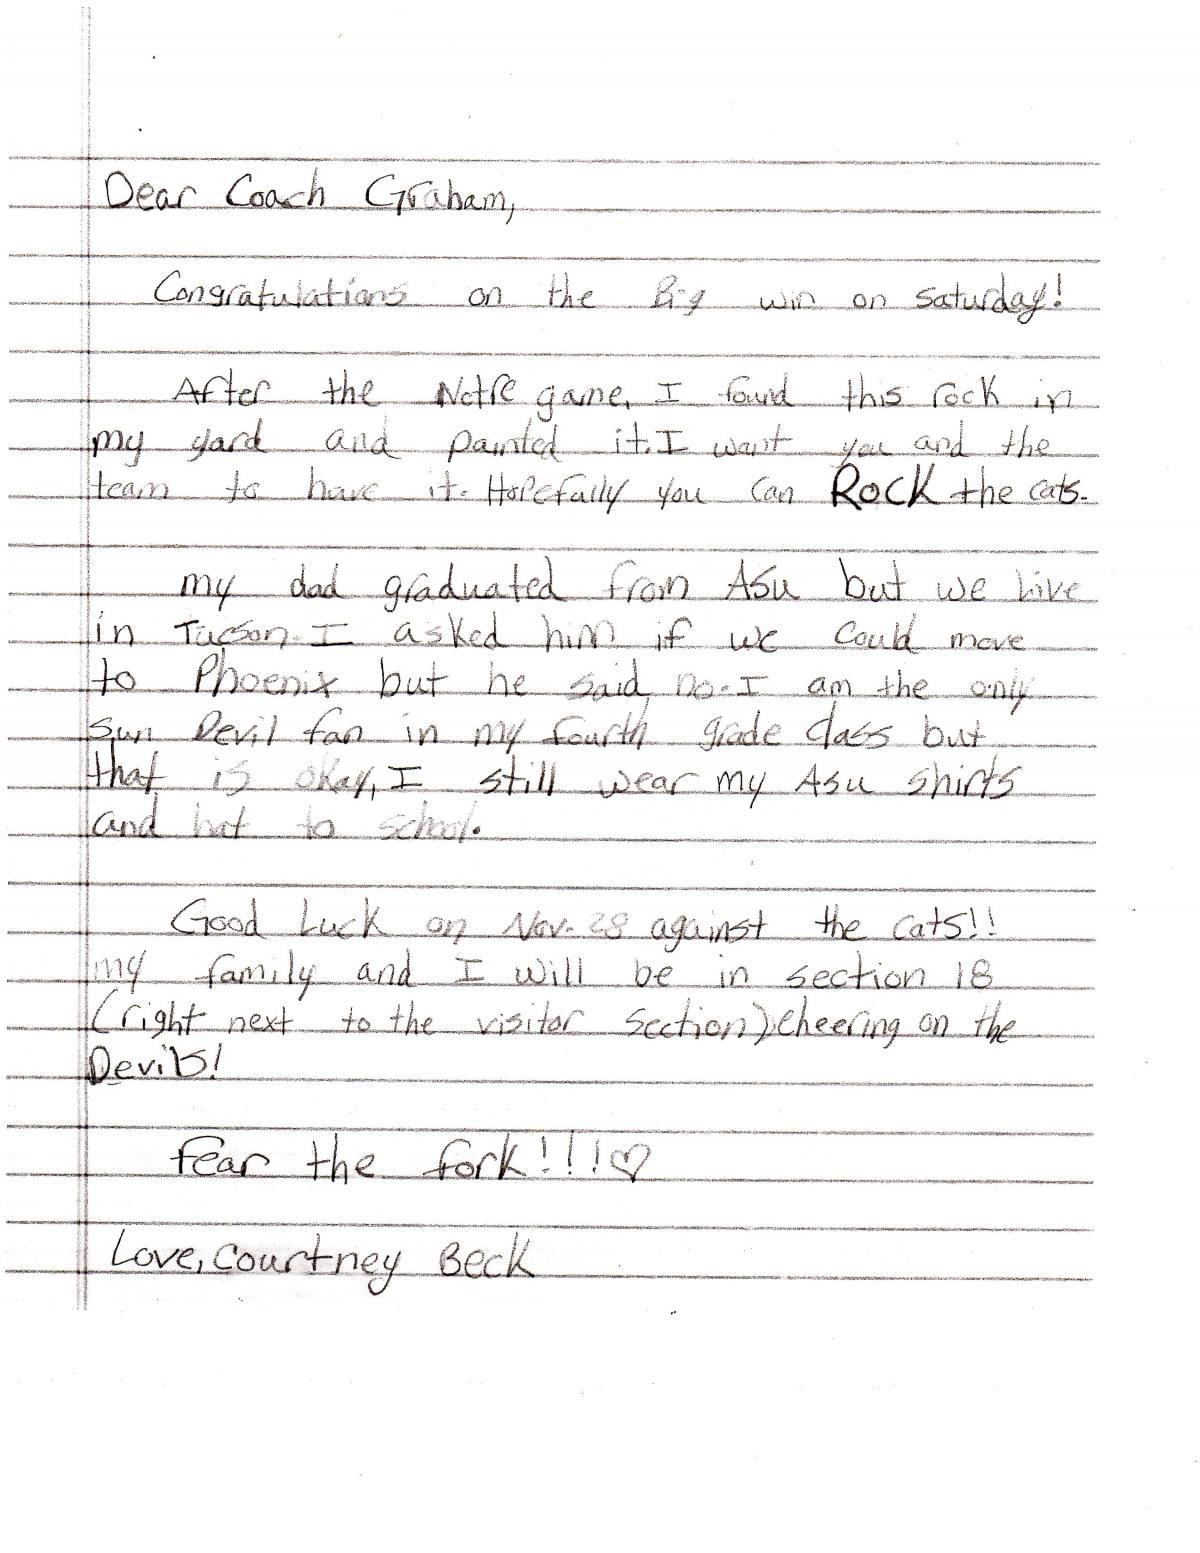 Dear Coach Graham,
Congratulations on the Big win on saturday!
After the Notre game, I found this rock in
my yard and painted it. I want you and the
team to have it. Hopefully you can ROCK the cats.
my dad graduated from ASU but we Live
in Tucson. I asked him if we could move
to Phoenix but he said no. I am the only
Sun Devil fan in my fourth grade class but
that is okay, I still wear my ASU shirts
and hat to school.
Good Luck on Nov. 28 against the cats!!
my family and I will be in section 18
(right next to the visitor section) cheering on the
Devils!
fear the fork!!!♡
Love, Courtney Beck